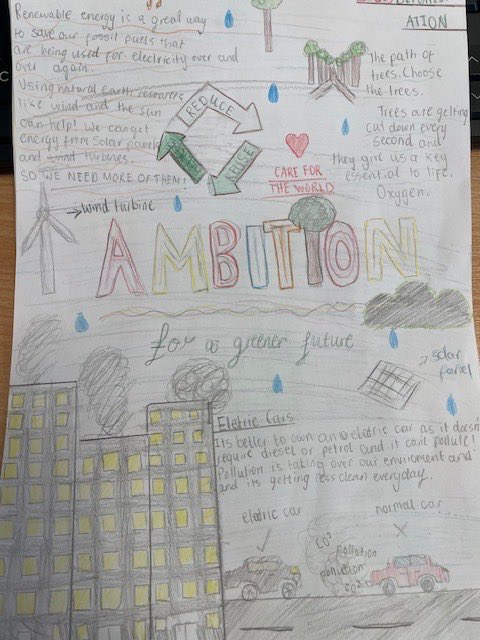 Renewable energy is a great way
to save our fossil fuels that
are being used for electricity over and
over again.
Using natural Earth resources
like wind and the sun
can help! We can get
energy from solar panels
and wind turbines.
SO WE NEED MORE OF THEM!
→ wind turbine
REDUCE
REUSE
ATION
The path of
trees. Choose
the trees.
Trees are getting
cut down every
second and
they give us a key
essential to life,
Oxygen.
CARE FOR
THE WORLD
AMBITION
for a greener future
→ solar
panel
Eletric Cars
Its better to own an eletric car as it doesn't
require diesel or petrol and it cant pollute!
Pollution is taking over our enviroment and
and its getting less clean everyday.
eletric car
normal car
CO²
pollution
pollution
CO²